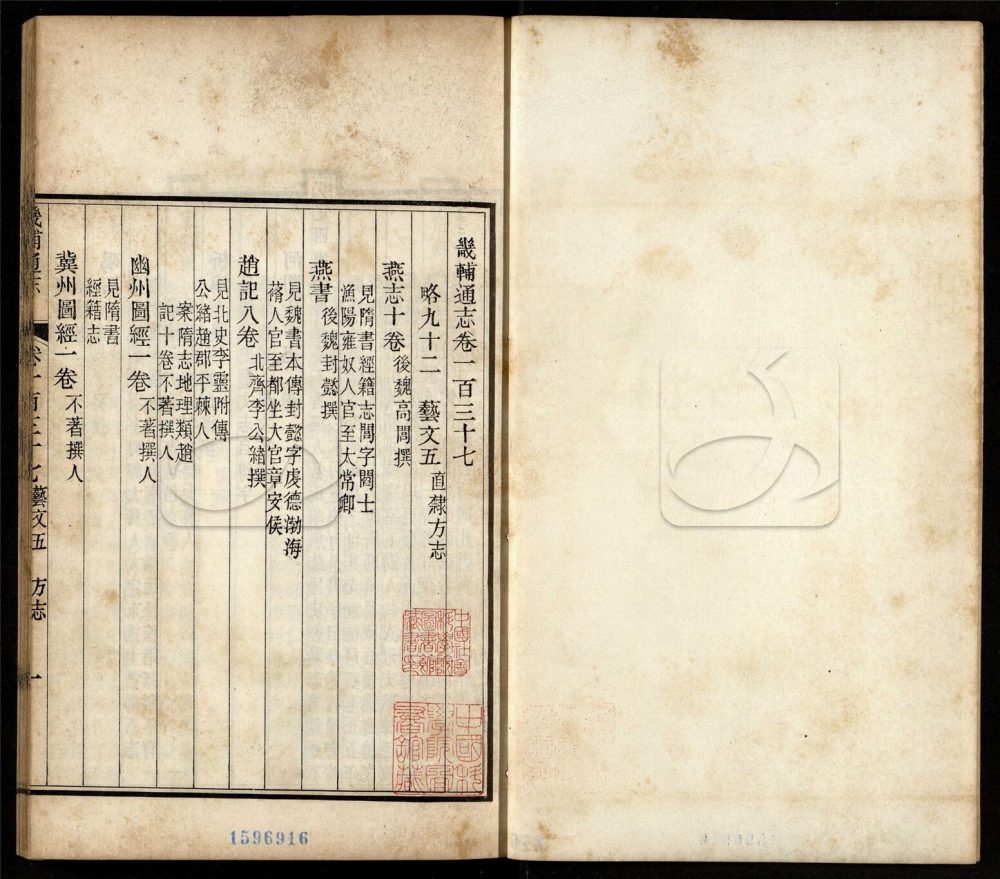 畿輔通志卷一百三十七
略九十二 藝文五 直隸方志
燕志十卷 後魏高閭撰
見隋書經籍志閭字閻士
漁陽雍奴人官至太常卿
燕書 後魏封懿撰
見魏書本傳封懿字處德渤海
蓨人官至都坐大官章安侯
趙記八卷 北齊李公緒撰
見北史李靈附傳
公緒趙郡平棘人
案隋志地理類趙
記十卷不著撰人
幽州圖經一卷 不著撰人
見隋書
經籍志
冀州圖經一卷 不著撰人
畿輔通志 卷一百三十七 藝文五 方志 一
中國社會
科學院
圖書館
藏書印
中國科
學院圖
書館藏
1596916